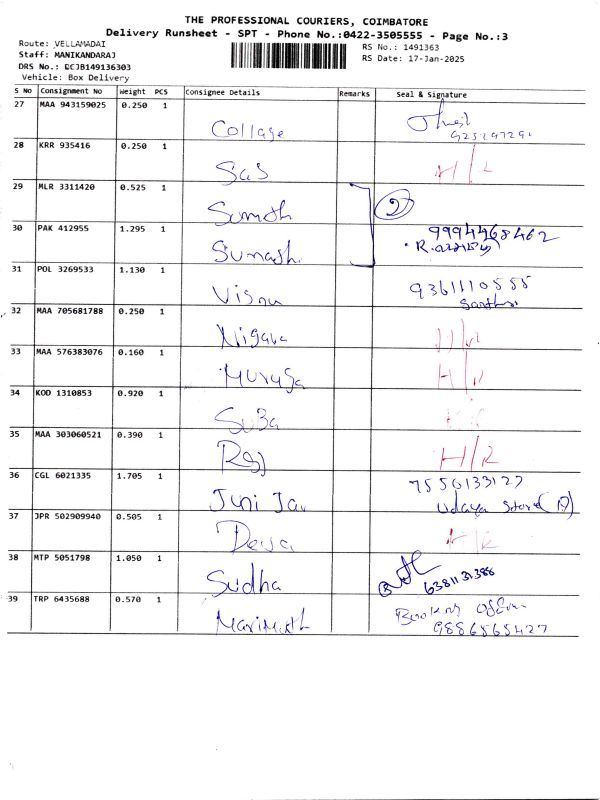 THE PROFESSIONAL COURIERS, COIMBATORE
Delivery Runsheet - SPT - Phone No.:0422-3505555 - Page No.:3
Route: VELLAMADAI
Staff: MANIKANDARAJ
DRS No.: DCJB149136303
Vehicle: Box Delivery
RS No.: 1491363
RS Date: 17-Jan-2025
S No Consignment No Weight PCS Consignee Details Remarks Seal & Signature
27 MAA 943159025 0.250 1 Collage
28 KRR 935416 0.250 1 Sas H/R
29 MLR 3311420 0.525 1 Sumoth 2
30 PAK 412955 1.295 1 Sumath 9994468462
31 POL 3269533 1.130 1 Visnu 9361110555
32 MAA 705681788 0.250 1
33 MAA 576383076 0.160 1 Muruga H/R
34 KOD 1310853 0.920 1 SuBa
35 MAA 303060521 0.390 1 Raj H/R
36 CGL 6021335 1.705 1 Juni Jau 7550133127
Udaya Store
37 JPR 502909940 0.505 1 Deva H/R
38 MTP 5051798 1.050 1 Sudha 6381131388
39 TRP 6435688 0.570 1 Marimuth Booking Office
9886565427